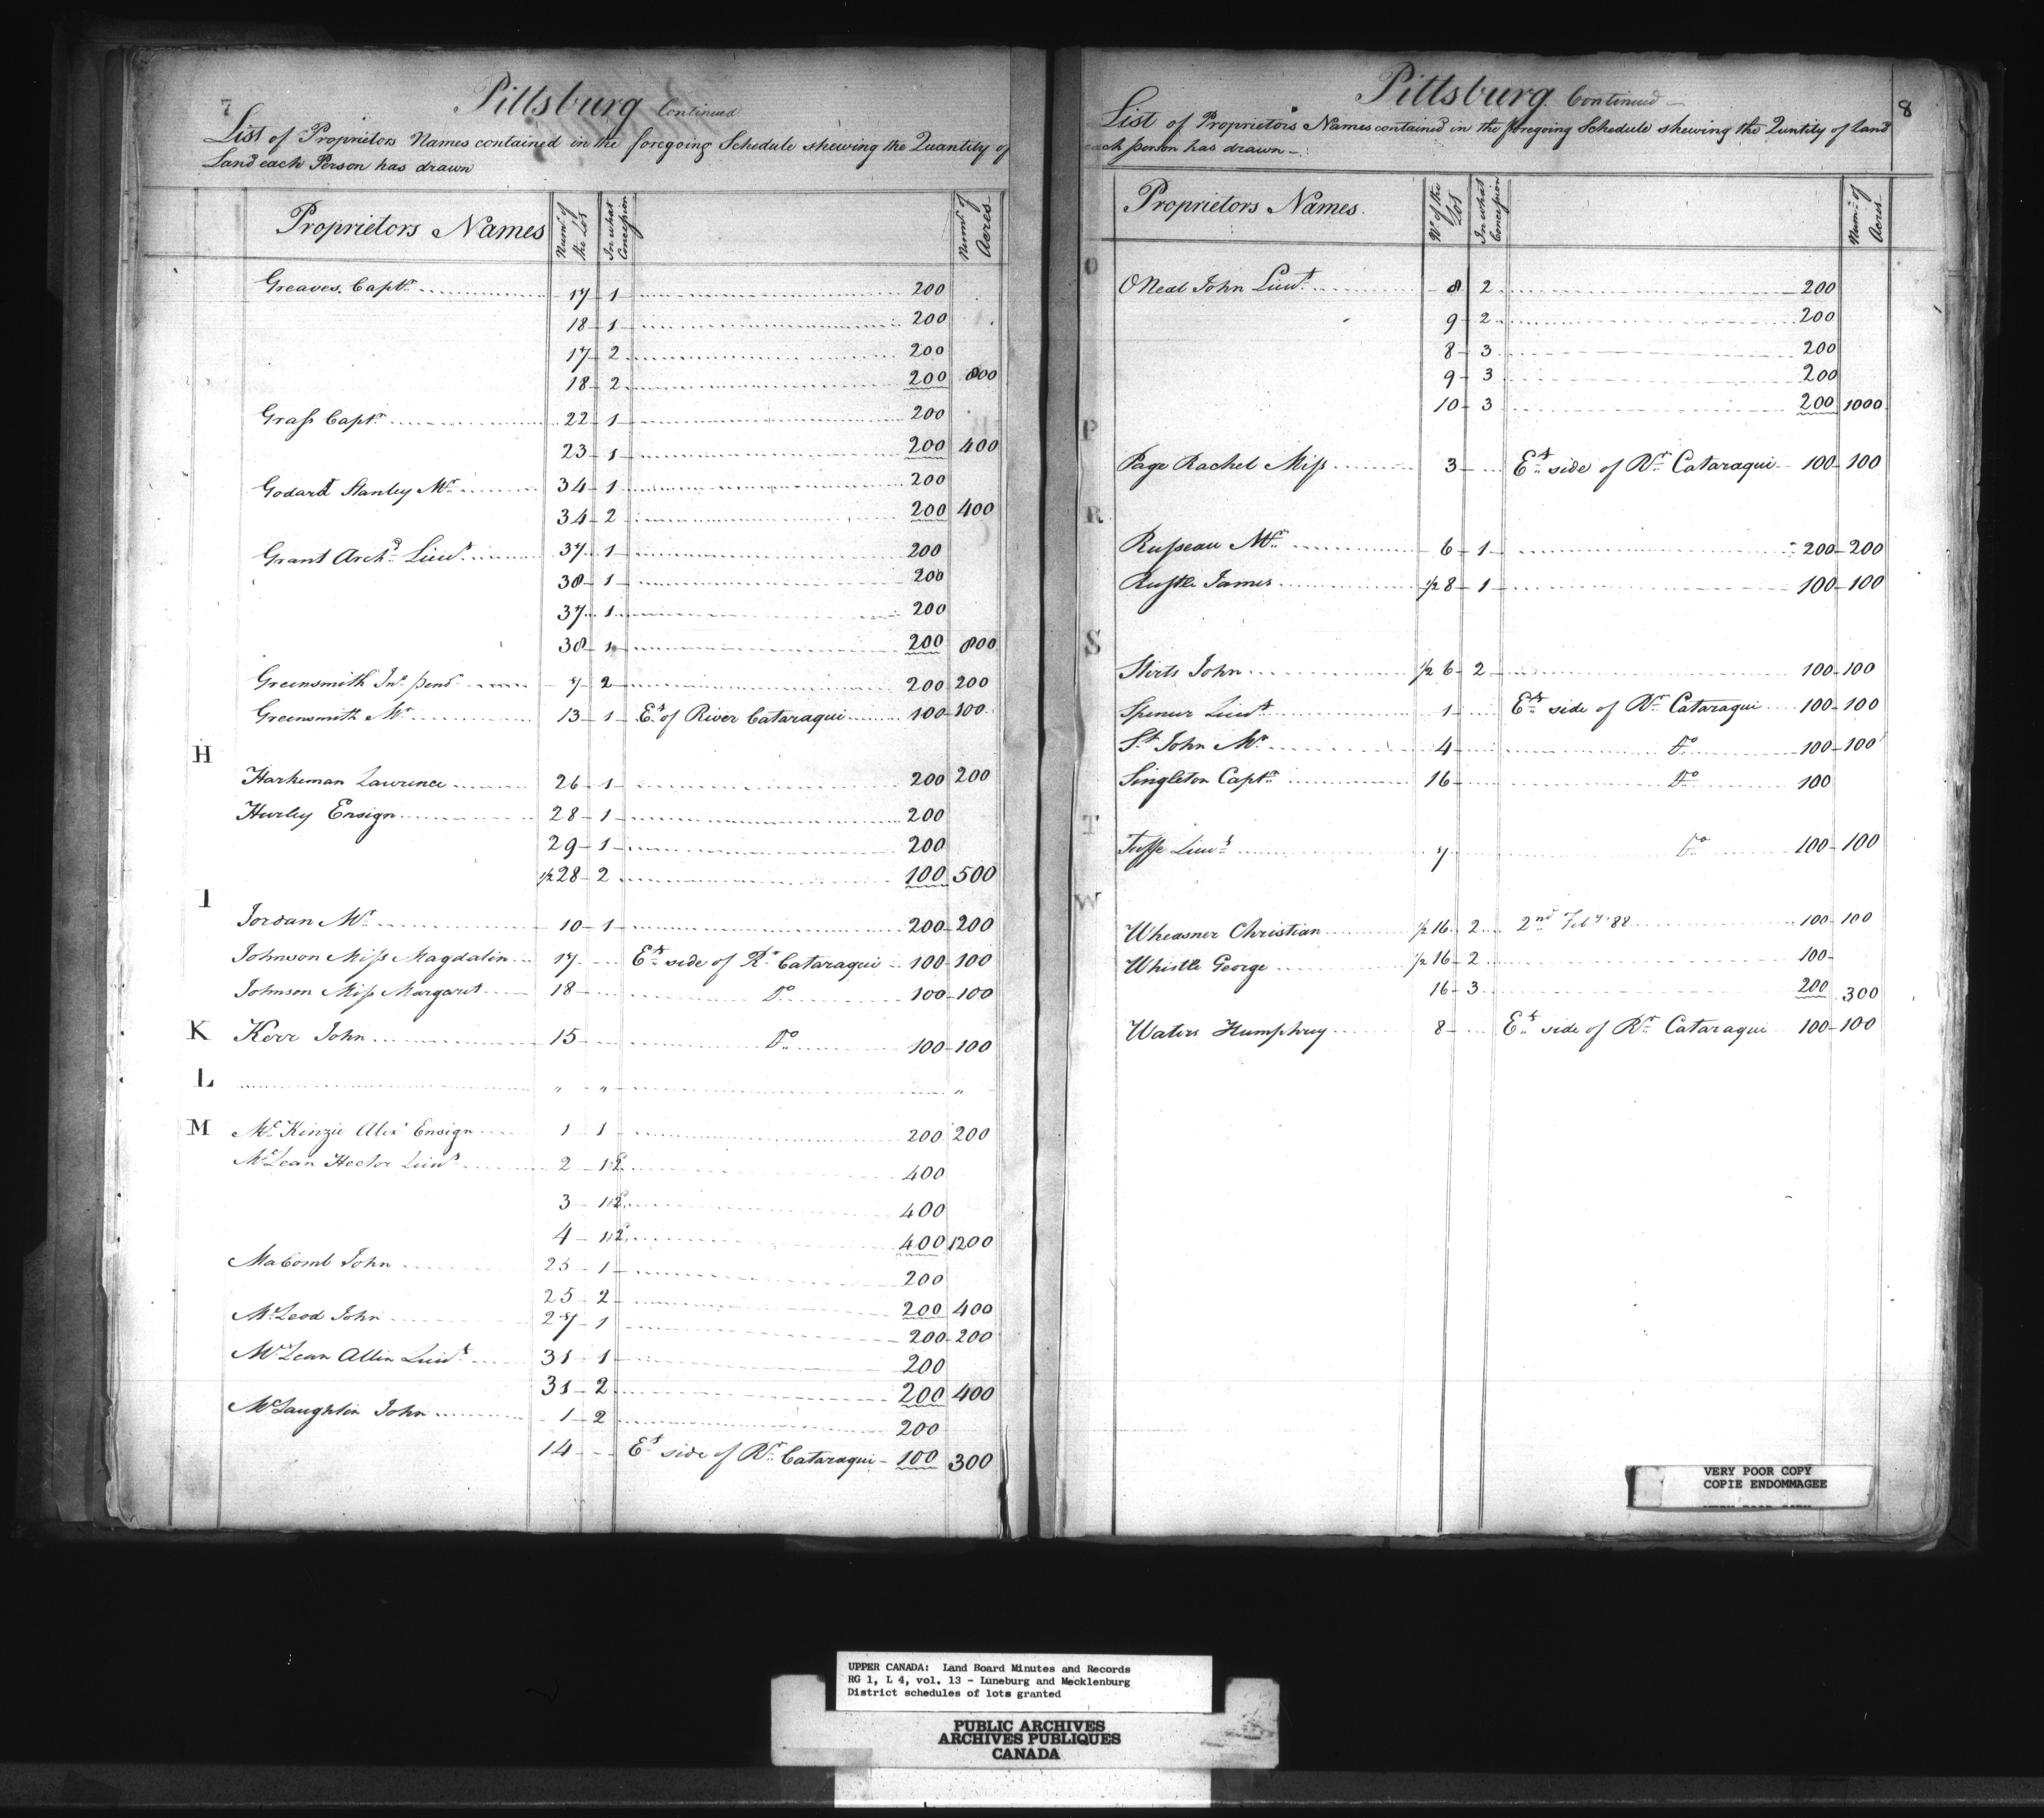 7
Pittsburg Continued
List of Proprietors Names contained in the foregoing Schedule shewing the Quantity of
Land each Person has drawn
Proprietors Names Numr. of the Lot In what Concession Numr. of Acres
Greaves Captn. 17 1 200
18 1 200
17 2 200
18 2 200 800
Grass Captn. 22 1 200
23 1 200 400
Godard Stanley Mr. 34 1 200
34 2 200 400
Grant Archd. Lieut. 37 1 200
38 1 200
37 1 200
38 1 200 800
Greensmith Jnr. 7 2 200 200
Greensmith Mr. 13 1 Et. of River Cataraqui 100 100
H
Harkeman Lawrence 26 1 200 200
Hurley Ensign 28 1 200
29 1 200
1/2 28 2 100 500
I
Jordan Mr. 10 1 200 200
Johnson Miss Magdalin 17 Et. side of Rr. Cataraqui 100 100
Johnson Miss Margaret 18 Do 100 100
K Kerr John 15 Do 100 100
L " " "
M McKinzie Alexr. Ensign 1 1 200 200
McLean Hector Lieut. 2 1&2 400
3 1&2 400
4 1&2 400 1200
MaComb John 25 1 200
25 2 200 400
McLeod John 27 1 200 200
McLean Allin Lieut. 31 1 200
31 2 200 400
McLaughlin John 1 2 200
14 Et. side of Rr. Cataraqui 100 300
8
Pittsburg Continued
List of Proprietors Names contained in the foregoing Schedule shewing the Quntity of Land
each person has drawn
Proprietors Names. No. of the Lot In what Concession Numr. of Acres
O
ONeal John Lieut. 8 2 200
9 2 200
8 3 200
9 3 200
10 3 200 1000
P
Page Rachel Miss 3 Et. side of Rr. Cataraqui 100 100
R
Russeau Mr. 6 1 200 200
Rustle James 1/2 8 1 100 100
S
Stirts John 1/2 6 2 100 100
Spencer Lieut. 1 Et. side of Rr. Cataraqui 100 100
St. John Mr. 4 Do 100 100
Singleton Captn. 16 Do 100
T
Tuffe Lieut. 7 Do 100 100
W
Wheasner Christian 1/2 16 2 2nd Feby. 88 100 100
Whistle George 1/2 16 2 100
16 3 200 300
Waters Humphrey 8 Et. side of Rr. Cataraqui 100 100
VERY POOR COPY
COPIE ENDOMMAGEE
UPPER CANADA: Land Board Minutes and Records
RG 1, L 4, vol. 13 - Luneburg and Mecklenburg
District schedules of lots granted
PUBLIC ARCHIVES
ARCHIVES PUBLIQUES
CANADA